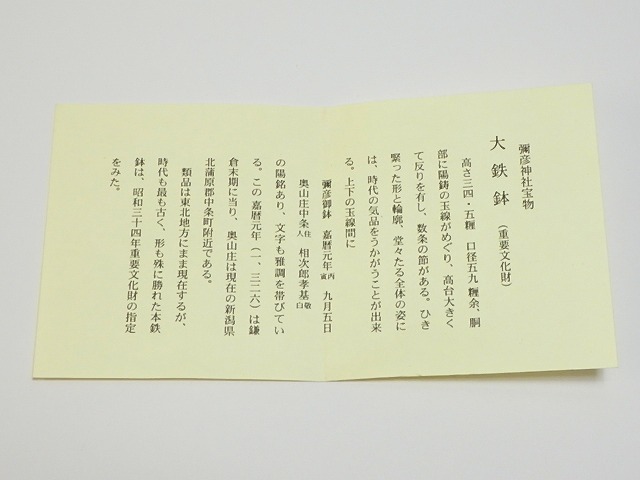 彌彦神社宝物
大鉄鉢（重要文化財）
高さ三四・五糎　口径五九糎余、胴
部に陽鋳の玉線がめぐり、高台大きく
て反りを有し、数条の節がある。ひき
緊った形と輪廓、堂々たる全体の姿に
は、時代の気品をうかがうことが出来
る。上下の玉線間に
彌彦御鉢　嘉暦元年丙寅　九月五日
奥山庄中条住人　相次郎孝基敬白
の陽銘あり、文字も雅調を帯びてい
る。この嘉暦元年（一、三二六）は鎌
倉末期に当り、奥山庄は現在の新潟県
北蒲原郡中条町附近である。
類品は東北地方にまま現在するが、
時代も最も古く、形も殊に勝れた本鉄
鉢は、昭和三十四年重要文化財の指定
をみた。